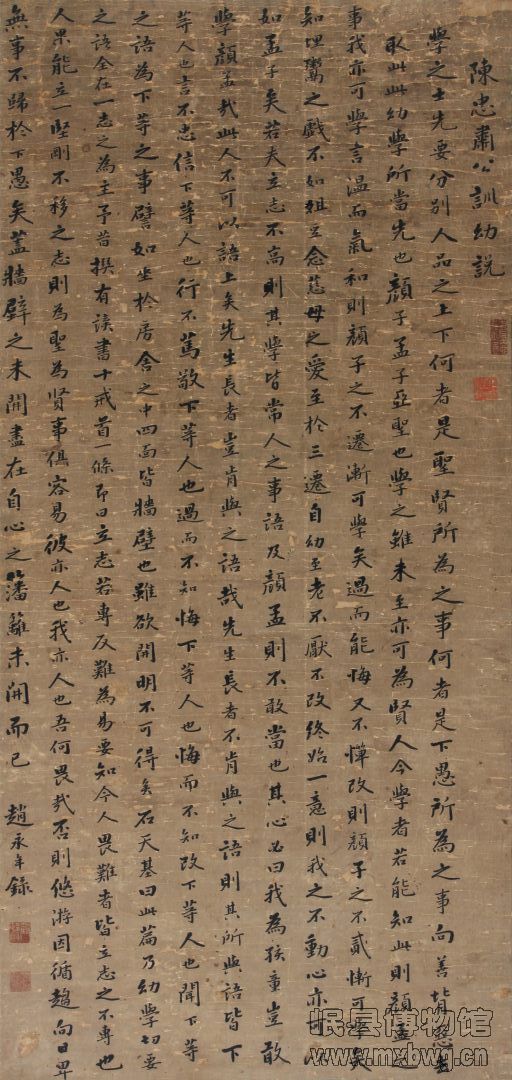 陳忠肅公訓幼說
學之士先要分別人品之上下何者是聖賢所為之事何者是下愚所為之事向善背惡去
取此此幼學所當先也顏子孟子亞聖也學之雖未至亦可為賢人今學者若能知此則顏孟之
事我亦可學言溫而氣和則顏子之不遷漸可學矣過而能悔又不憚改則顏子之不貳漸可學矣
知埋鬻之戲不如俎豆念慈母之愛至於三遷自幼至老不厭不改終始一意則我之不動心亦可以
如孟子矣若夫立志不高則其學皆常人之事語及顏孟則不敢當也其心必曰我為孩童豈敢
學顏孟哉此人不可以語上矣先生長者豈肯與之語哉先生長者不肯與之語則其所與語皆下
等人也言不忠信下等人也行不篤敬下等人也過而不知悔下等人也悔而不知改下等人也聞下等
之語為下等之事譬如坐於房舍之中四面皆牆壁也雖欲開明不可得矣石天基曰此篇乃幼學切要
之語全在一志之為主予昔撰有讀書十戒首一條即曰立志若專反難為易要知今人畏難者皆立志之不專也
人果能立一堅剛不移之志則為聖為賢事俱容易彼亦人也我亦人也吾何畏哉否則悠游因循趨向日卑
無事不歸於下愚矣蓋牆壁之未開盡在自心之籓籬未開而已
趙永年錄
岷县博物馆
www.mxbwg.cn